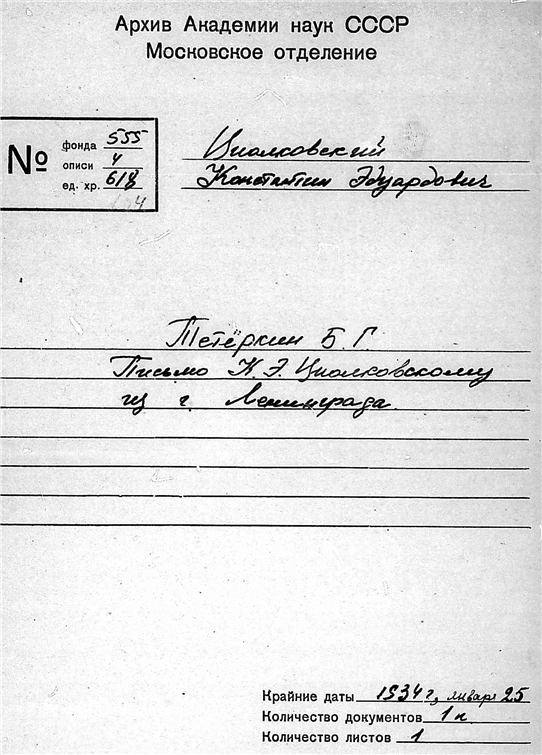 Архив Академии наук СССР
Московское отделение
№
фонда 555
описи 4
ед. хр. 618
Циолковский
Константин Эдуардович
Тетёркин Б. Г.
Письмо К. Э. Циолковскому
из г. Ленинграда.
Крайние даты 1934 г, января 25
Количество документов 1
Количество листов 1